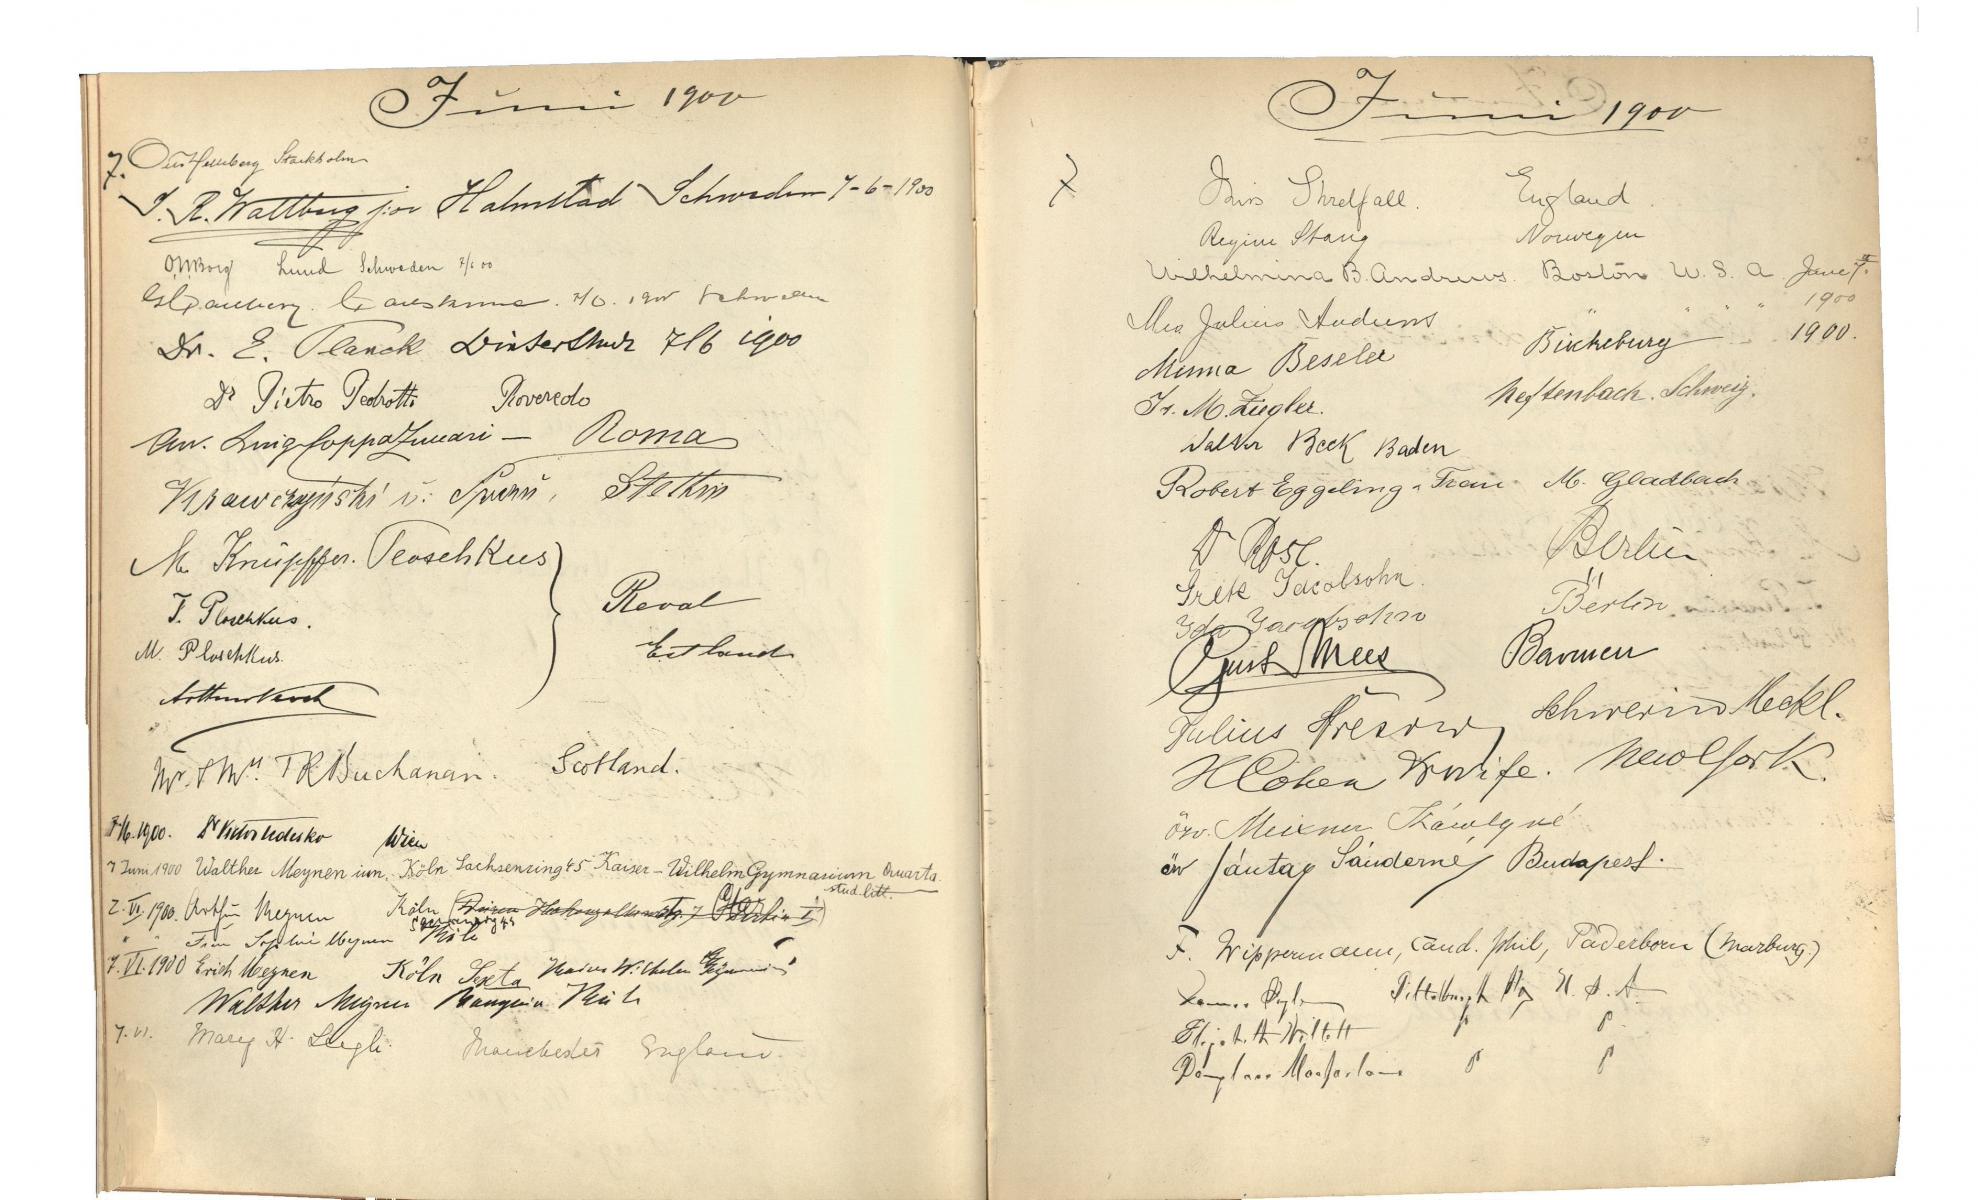 Juni 1900
7. Stockholm
J. R. Wallberg jor Halmstad Schweden 7-6-1900
Borg Lund Schweden 7/6 00
1900 Schweden
Dr. E. Planck Winterthur 7/6 1900
Dr Pietro Pedrotti Roveredo
Avv. Luigi Coppa Zuccari — Roma
Krawczyński u. Stettin
M. Knüpffer. Ploschkus
J. Ploschkus. Reval
M. Ploschkus. Estland
Arthur Koch
Mr. & Mrs. T R Buchanan. Scotland.
7/6.1900. Dr Victor Tedesko Wien
7 Juni 1900 Walther Meynen iun. Köln Sachsenring 45 Kaiser-Wilhelm Gymnasium Quarta.
stud. litt.
7. VI. 1900. Arthur Meynen Köln
Sachsenring 45
" " Frau Sophie Meynen Köln
7. VI. 1900 Erich Meynen Köln Sexta Kaiser Wilhelm Gymnasium
Walther Meynen Köln
7. VI. Mary H. Manchester England.
Juni 1900
7 Threlfall. England.
Regine Stang Norwegen
Wilhelmina B. Andrews. Boston U. S. A. June 7th.
1900
Mrs Julius Andrews " " " "
Minna Beseler Bückeburg 1900.
Fr. M. Ziegler. Neftenbach. Schweiz.
Walter Beck Baden
Robert Eggeling u Frau M. Gladbach
Dr Rose. Berlin
Grete Jacobsohn. "
Ida Jacobsohn Berlin
Gust Mees Barmen
Julius Tresow, Schwerin Meckl.
H Cohen & wife. New York.
özv. Meixner Károlyné
özv Jántay Sándorné Budapest.
F. Wippermann, cand. phil, Paderborn (Marburg.)
Pittsburgh Pa U. S. A.
Elizabeth Willett " "
Douglass Macfarlane " "